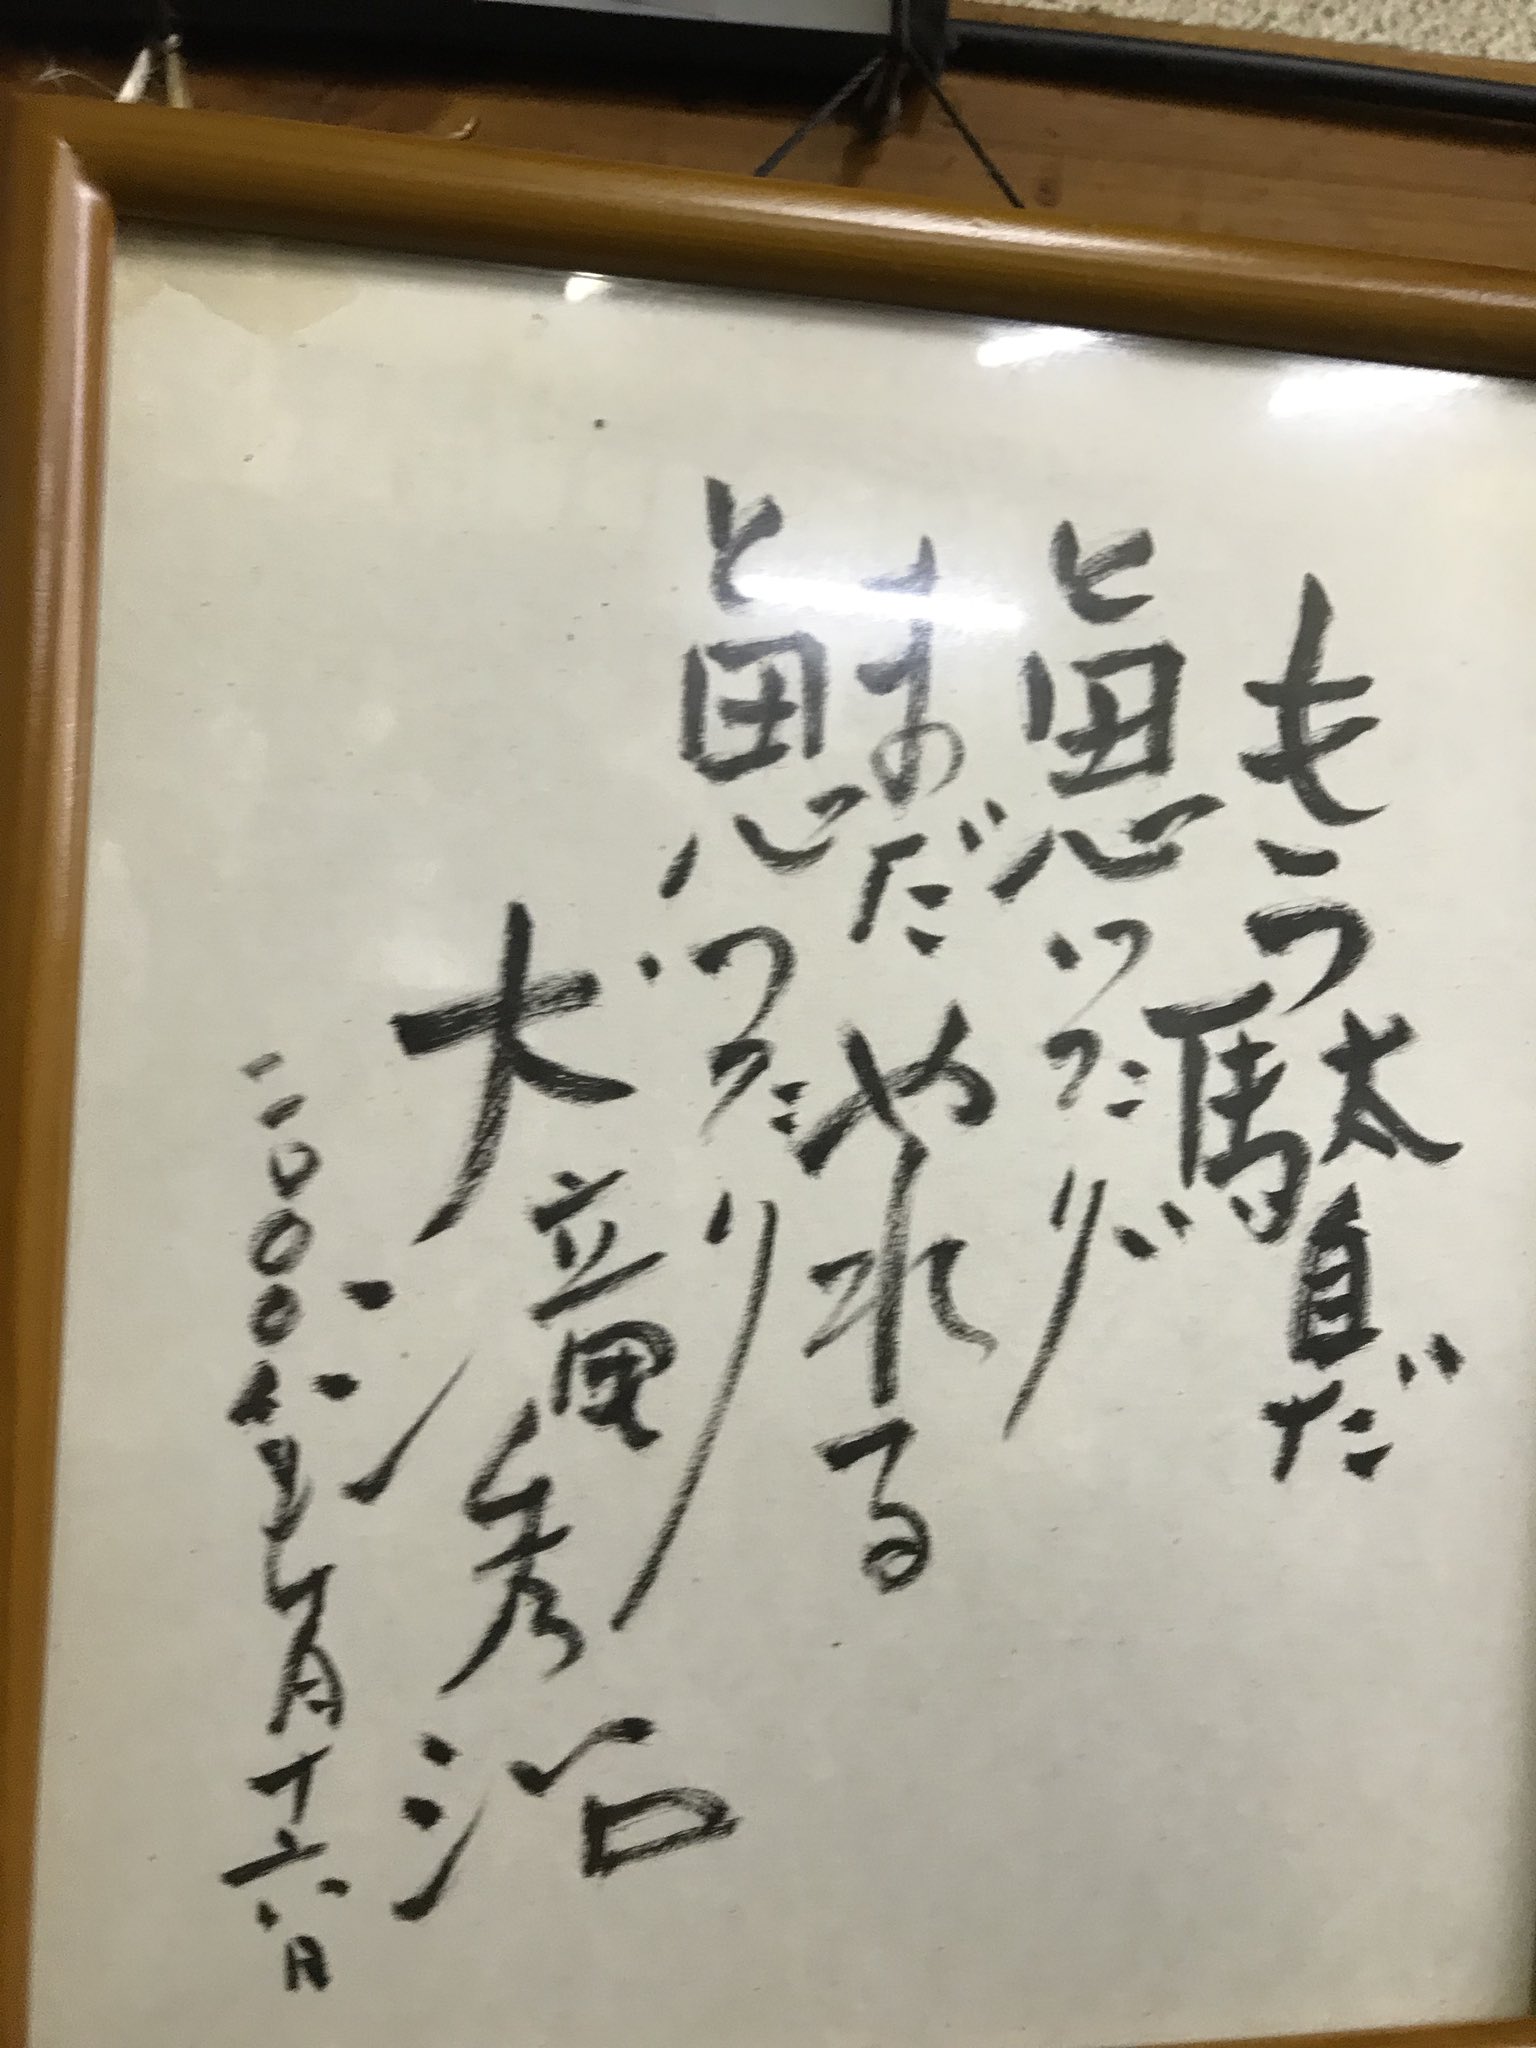 もう駄目だ
と思ったり
まだやれる
と思ったり
大滝秀治
二〇〇〇年七月十六日